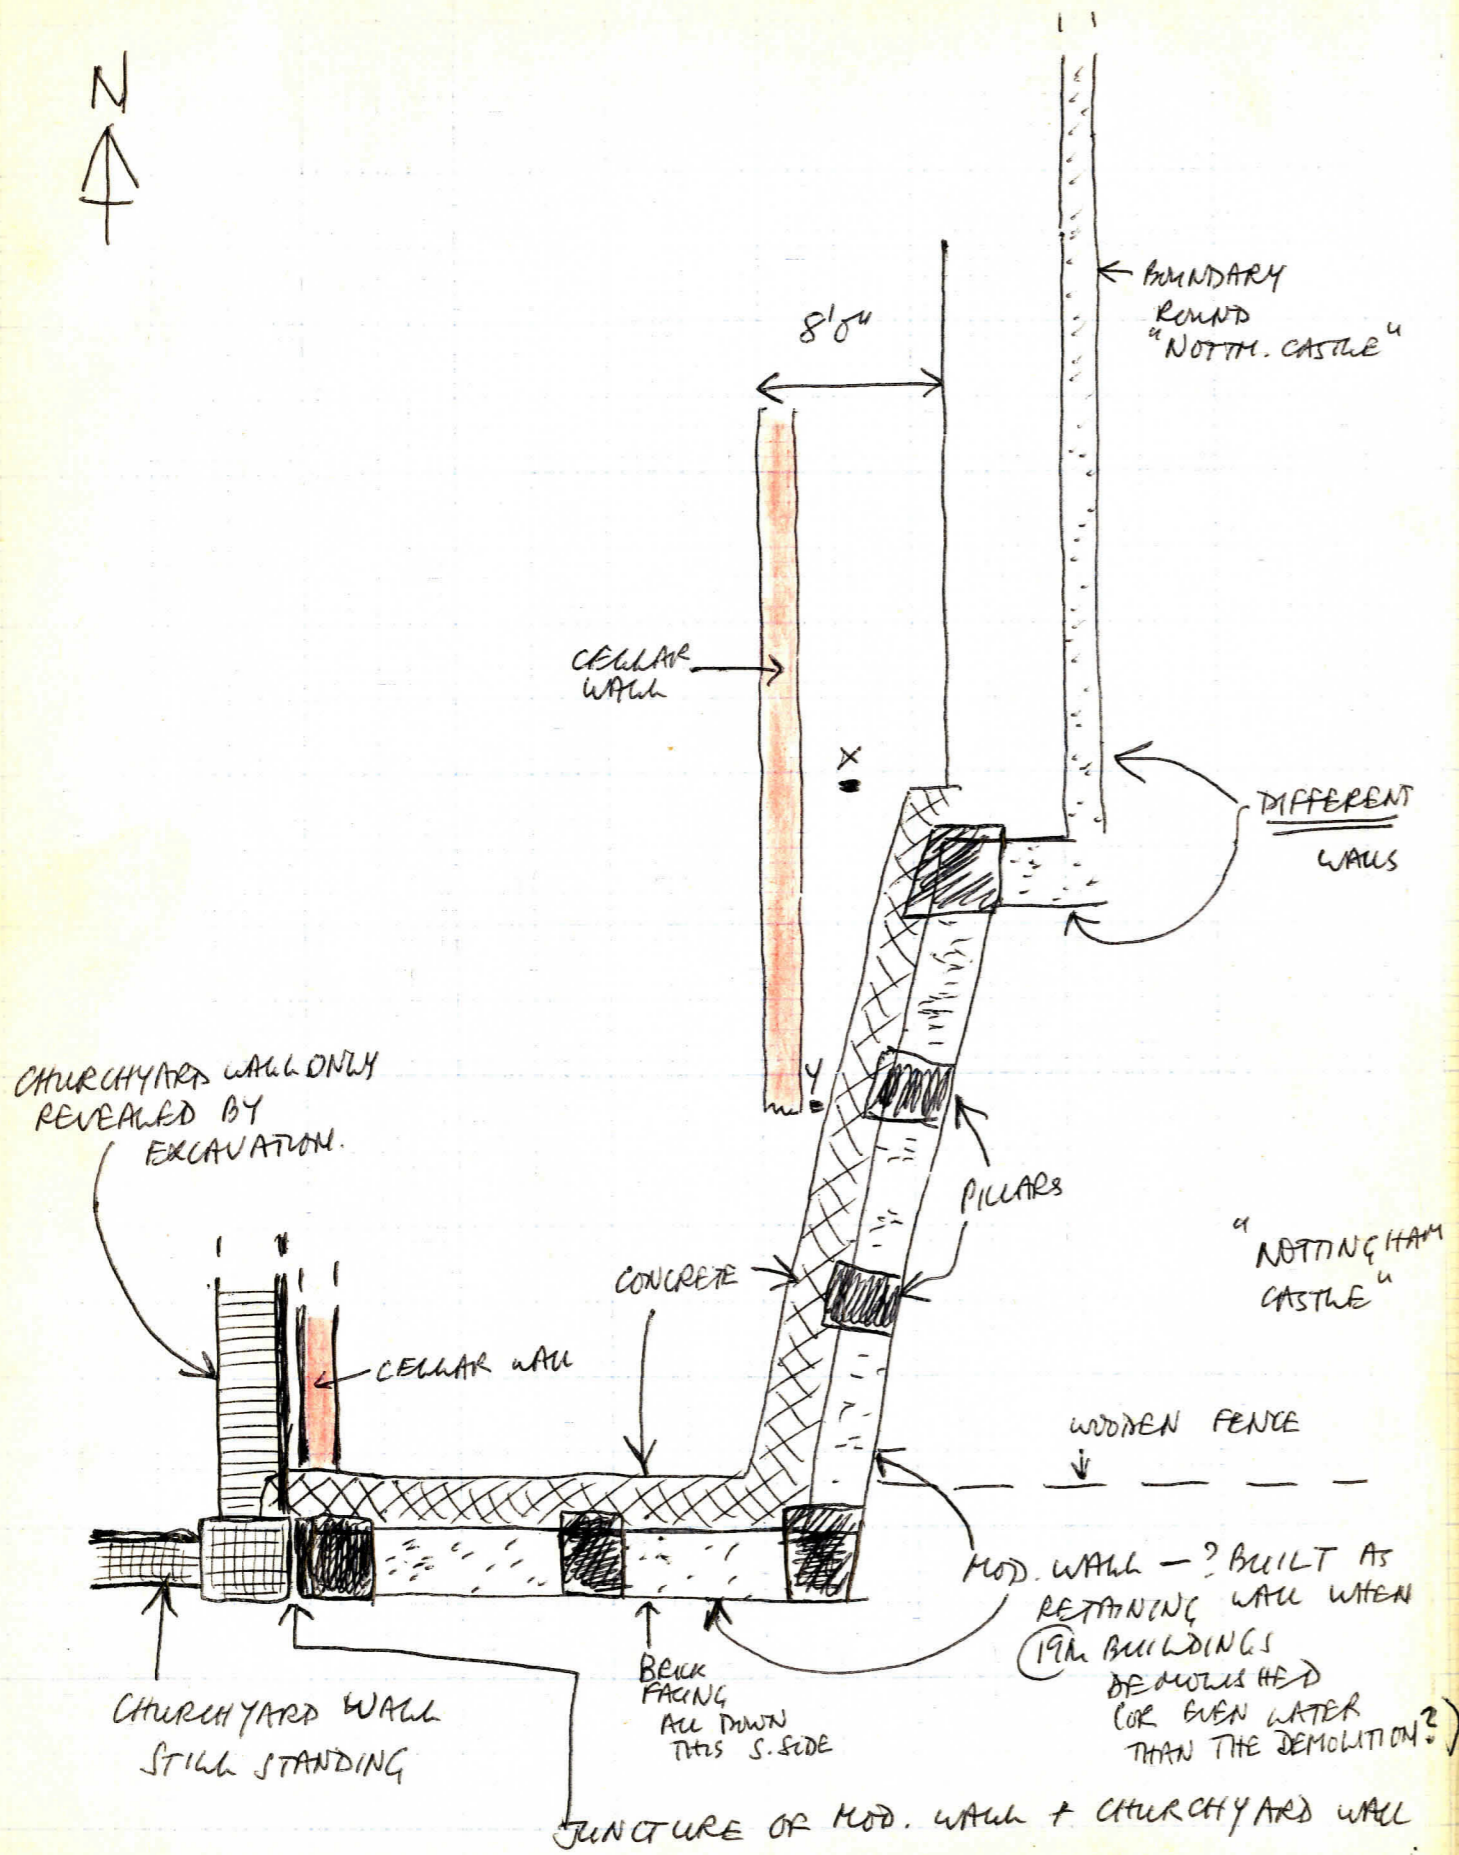 N
8'0"
BOUNDARY
ROUND
"NOTTM. CASTLE"
CELLAR
WALL
X
DIFFERENT
WALLS
Y
CHURCHYARD WALL ONLY
REVEALED BY
EXCAVATION.
PILLARS
"NOTTINGHAM
CASTLE"
CONCRETE
CELLAR WALL
WOODEN FENCE
MOD. WALL — ? BUILT AS
RETAINING WALL WHEN
19th BUILDINGS
DEMOLISHED
(OR EVEN LATER
THAN THE DEMOLITION?)
BRICK
FACING
ALL DOWN
THIS S. SIDE
CHURCHYARD WALL
STILL STANDING
JUNCTURE OF MOD. WALL + CHURCHYARD WALL